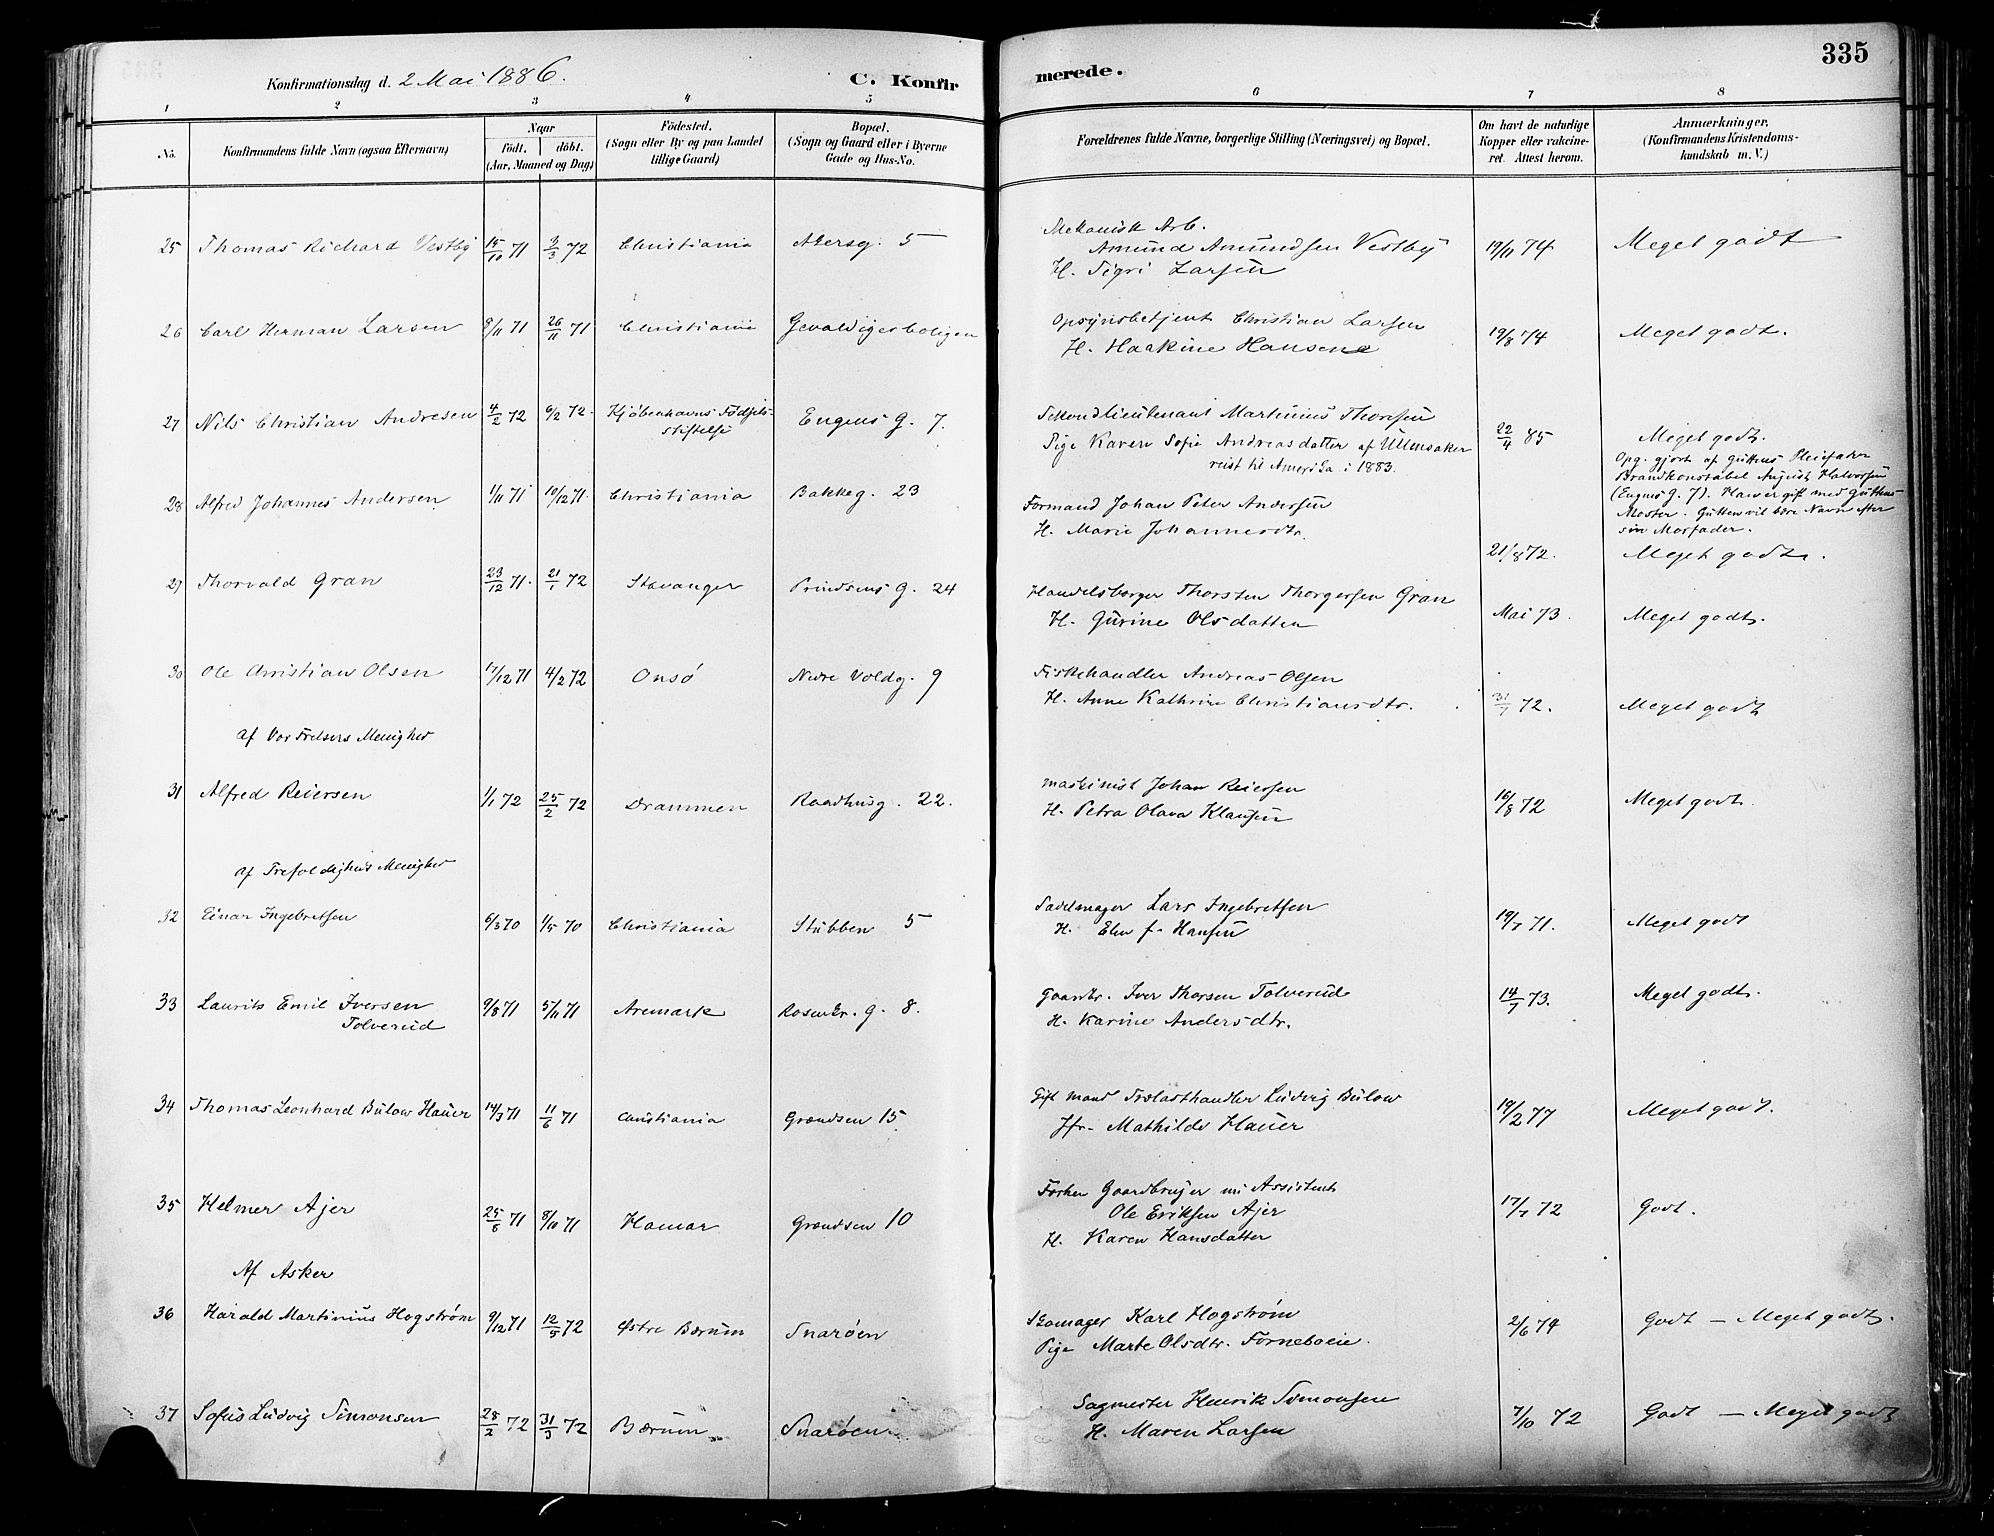 335
Konfirmationsdag d. 2 Mai 1886.
C. Konfir
merede.
1 2 3 4 5 6 7 8
No.
Konfirmandens fulde Navn (ogsaa Efternavn)
Naar
födt. döbt.
(Aar, Maaned og Dag)
Födested.
(Sogn eller By og paa Landet
tillige Gaard)
Bopæl.
(Sogn og Gaard eller i Byerne
Gade og Hus-No.
Forældrenes fulde Navne, borgerlige Stilling (Næringsvei) og Bopæl.
Om havt de naturlige
Kopper eller vakcine-
ret. Attest herom.
Anmærkninger.
(Konfirmandens Kristendoms-
kundskab m. V.)
25 Thomas Richard Vestby 15/10 71 3/3 72 Christiania Akersg. 5
Mekanisk Arb.
Amund Amundsen Vestby
H. Sigri Larsen
19/11 74 Meget godt
26 Carl Herman Larsen 8/11 71 26/11 71 Christiania Gevaldigerboligen
Opsynsbetjent Christian Larsen
H. Haakine Hansen
19/8 74 Meget godt.
27 Nils Christian Andresen 4/2 72 6/2 72. Kjøbenhavns Födsels-
stiftelse
Eugens G. 7.
Sekondlieutenant Martinius Thoresen
Pige Karen Sofie Andreasdatter af Ullensaker
reist til Amerika i 1883.
22/4 85 Meget godt.
Opg. gjort af Guttens Pleiefader
Brandkonstabel August Halvorsen
(Eugens G. 7). Han er gift med Guttens
Moster. Gutten vil bære Navn efter
sin Morfader.
28 Alfred Johannes Andersen 1/11 71 10/12 71. Christiania Bakkeg. 23
Formand Johan Peter Andersen
H. Marie Johannesdtr.
21/8 72. Meget godt.
29 Thorvald Gran 23/12 71. 21/1 72 Stavanger Prindsens G. 24
Handelsborger Thorsten Thorgersen Gran
H. Gurine Olsdatter
Mai 73. Meget godt.
30 Ole Christian Olsen 17/12 71 4/2 72 Onsö Nedre Voldg. 9
Fiskehandler Andreas Olsen
H. Anne Kathrine Christiansdtr.
31/7 72. Meget godt
af Vor Frelsers Menighed
31 Alfred Reiersen 1/1 72 25/2 72 Drammen Raadhusg. 22.
Maskinist Johan Reiersen
H. Petra Olava Klausen
16/8 72 Meget godt
af Trefoldigheds Menighed
32 Einar Ingebretsen 6/3 70 1/5 70 Christiania Stubben 5
Sadelmager Lars Ingebretsen
H. Elen f. Hansen
19/7 71. Meget godt
33 Laurits Emil Iversen
Tolverud
9/8 71 5/11 71 Aremark Rosenkr. G. 8.
Gaardbr. Iver Thorsen Tolverud
H. Karine Andersdtr.
14/7 73. Meget godt.
34 Thomas Leonhard Bülow Hauer 14/3 71 11/6 71 Christiania Grændsen 15
Gift Mand Trælasthandler Ludvig Bülow
Jfr. Mathilde Hauer
19/2 77 Meget godt.
35 Helmer Ajer 25/6 71 8/10 71 Hamar Grændsen 10
Forhen Gaardbruger nu Assistent
Ole Eriksen Ajer
H. Karen Hansdatter
17/7 72 Godt.
Af Asker
36 Harald Martinius Hogstrøm 9/12 71 12/5 72 Østre Bærum Snarøen
Skomager Karl Hogstrøm
Pige Marte Olsdtr. Forneboeie.
2/6 74 Godt – Meget godt.
37 Sofus Ludvig Simonsen 28/2 72 31/3 72 Bærum Snarøen
Sagmester Henrik Simonsen
H. Maren Larsen
7/10 72 Godt – Meget godt